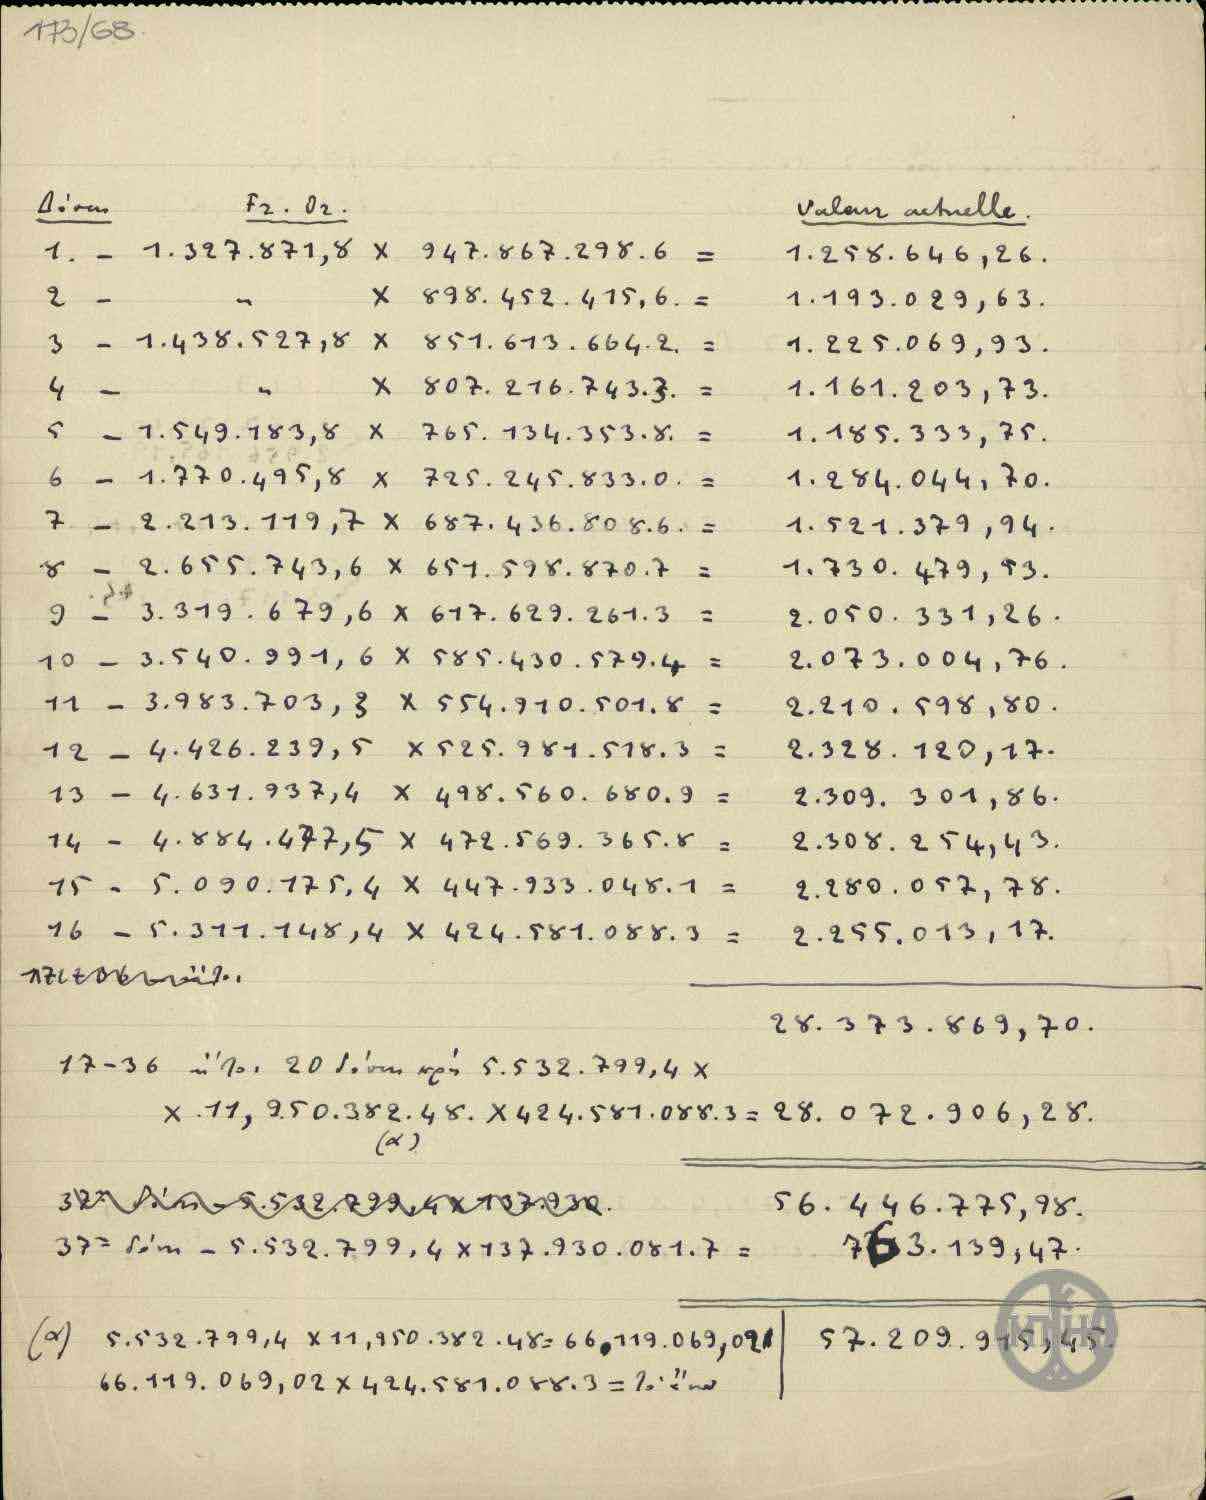 173/68.
Δόσεις Fr. Or. Valeur actuelle.
1. – 1.327.871,8 × 947.867.298.6 = 1.258.646,26.
2 – " × 898.452.415,6. = 1.193.029,63.
3 – 1.438.527,8 × 851.613.664.2. = 1.225.069,93.
4 – " × 807.216.743.7. = 1.161.203,73.
5 – 1.549.183,8 × 765.134.353.8. = 1.185.333,75.
6 – 1.770.495,8 × 725.245.833.0. = 1.284.044,70.
7 – 2.213.119,7 × 687.436.808.6. = 1.521.379,94.
8 – 2.655.743,6 × 651.598.870.7 = 1.730.479,53.
9 – 3.319.679,6 × 617.629.261.3 = 2.050.331,26.
10 – 3.540.991,6 × 585.430.579.4 = 2.073.004,76.
11 – 3.983.703,3 × 554.910.501.8 = 2.210.598,80.
12 – 4.426.239,5 × 525.981.518.3 = 2.328.120,17.
13 – 4.631.937,4 × 498.560.680.9 = 2.309.301,86.
14 – 4.884.477,5 × 472.569.365.8 = 2.308.254,43.
15 – 5.090.175,4 × 447.933.048.1 = 2.280.057,78.
16 – 5.311.148,4 × 424.581.088.3 = 2.255.013,17.
28.373.869,70.
17–36 ἤτοι 20 δόσεις πρὸς 5.532.799,4 ×
× 11,950.382.48. × 424.581.088.3 = 28.072.906,28.
(α)
37η δόσις – 5.532.799,4 × 137.930. 56.446.775,98.
37η δόσις – 5.532.799,4 × 137.930.081.7 = 763.139,47.
(α) 5.532.799,4 × 11,950.382.48 = 66,119.069,02 57.209.915,45.
66.119.069,02 × 424.581.088.3 =